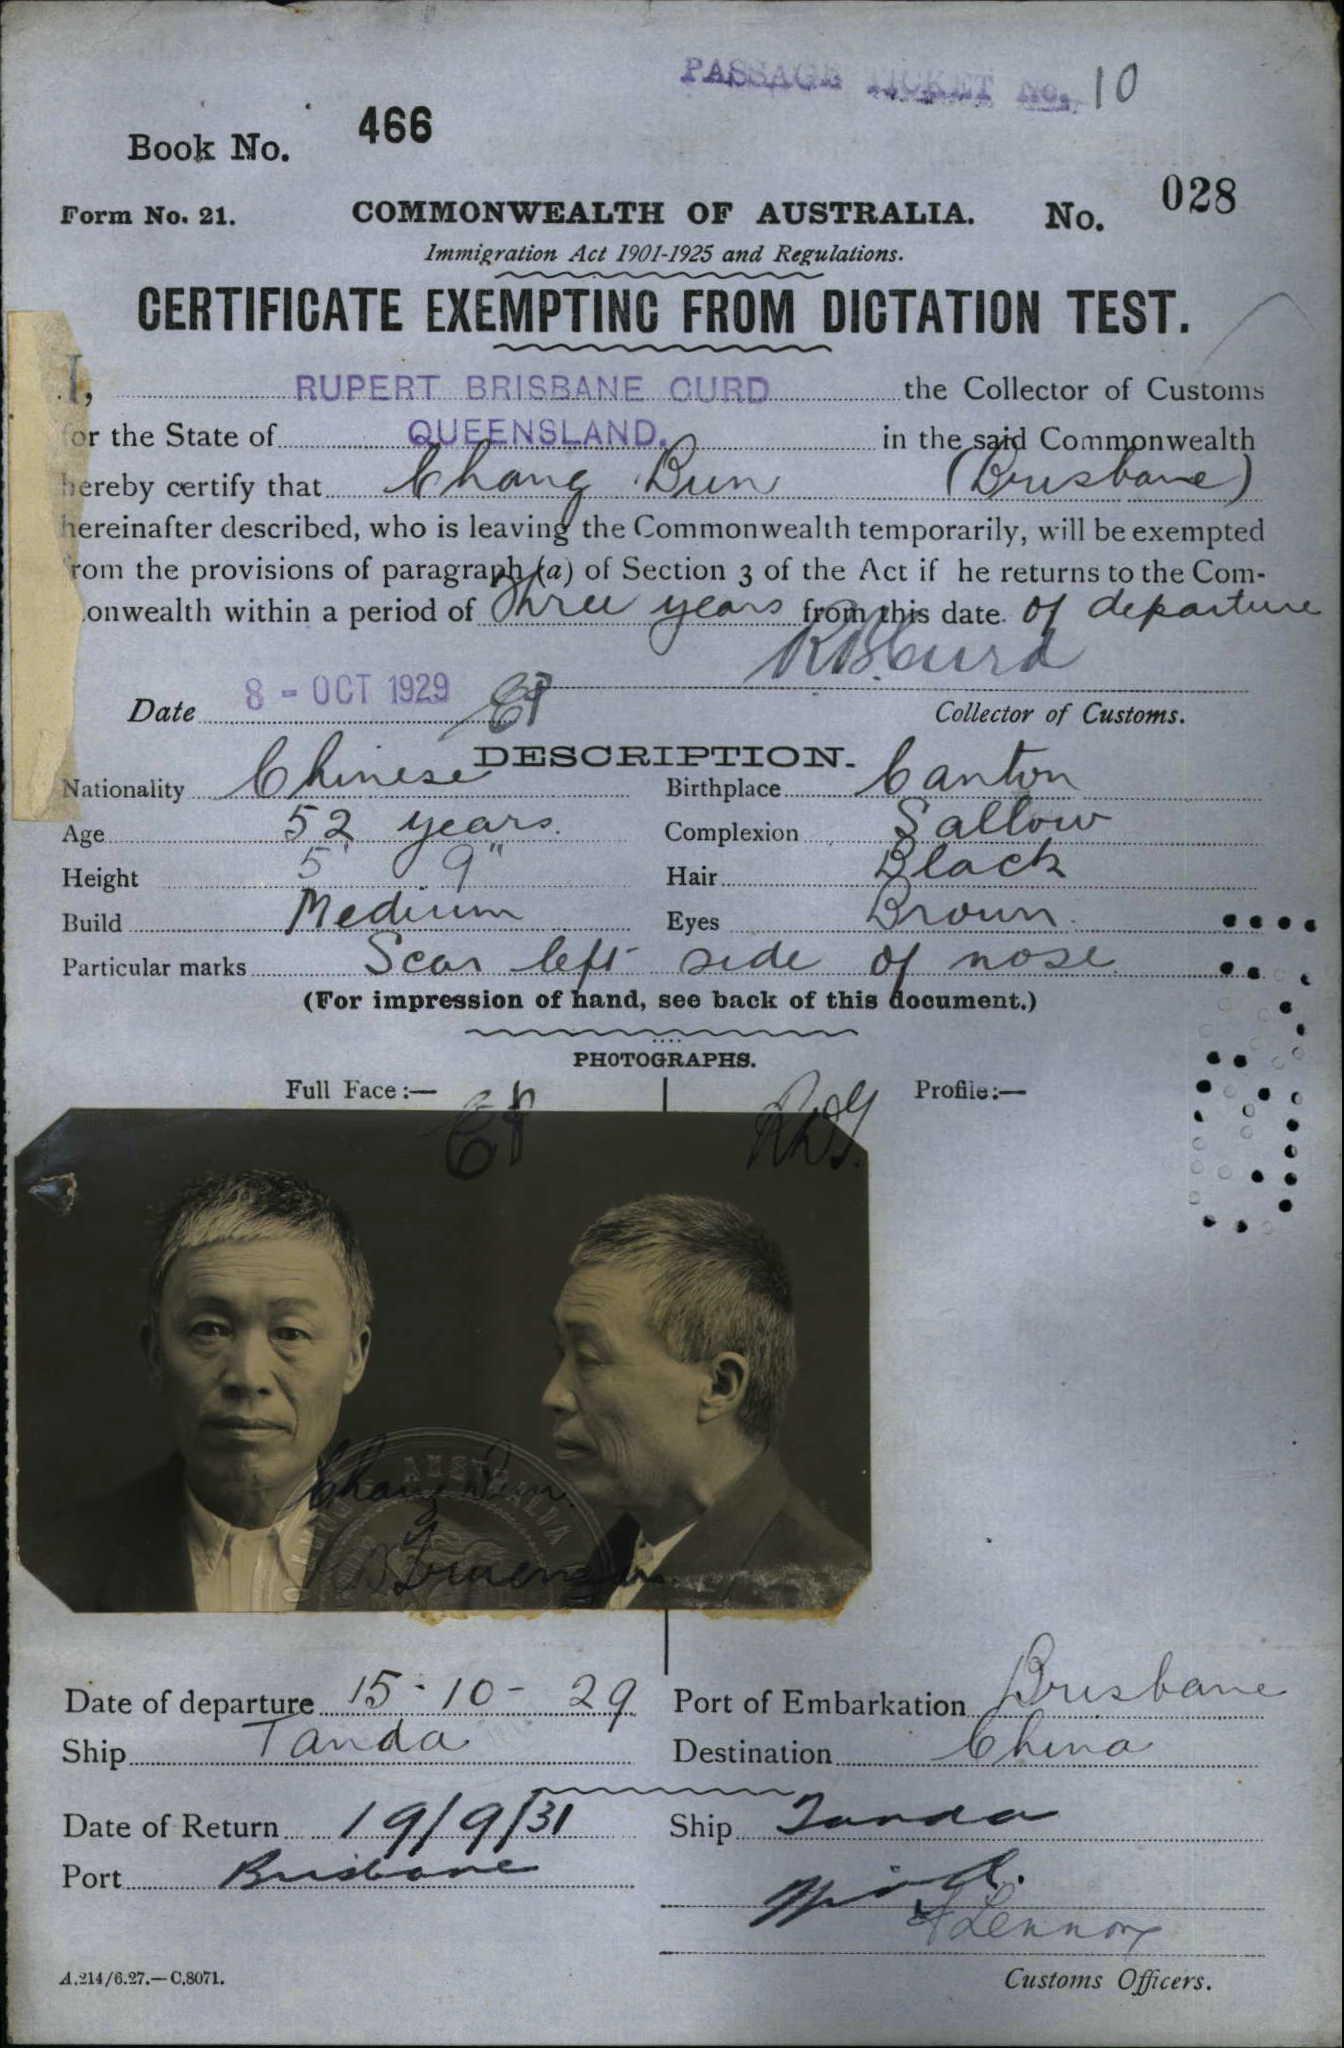 PASSAGE TICKET No. 10
Book No. 466
Form No. 21. COMMONWEALTH OF AUSTRALIA. No. 028
Immigration Act 1901-1925 and Regulations.
CERTIFICATE EXEMPTING FROM DICTATION TEST.
I, RUPERT BRISBANE CURD the Collector of Customs
for the State of QUEENSLAND. in the said Commonwealth
hereby certify that Chang Bun (Brisbane)
hereinafter described, who is leaving the Commonwealth temporarily, will be exempted
from the provisions of paragraph (a) of Section 3 of the Act if he returns to the Com-
onwealth within a period of Three years from this date of departure
R B Curd
Date 8 - OCT 1929 Collector of Customs.
DESCRIPTION.
Nationality Chinese Birthplace Canton
Age 52 years. Complexion Sallow
Height 5' 9" Hair Black
Build Medium Eyes Brown.
Particular marks Scar left side of nose
(For impression of hand, see back of this document.)
PHOTOGRAPHS.
Full Face:— Profile:—
Chang Bun.
AUSTRALIA
Date of departure 15-10-29 Port of Embarkation Brisbane
Ship Tanda Destination China
Date of Return 19/9/31 Ship Tanda
Port Brisbane
Lennox
A.214/6.27.—C.8071. Customs Officers.